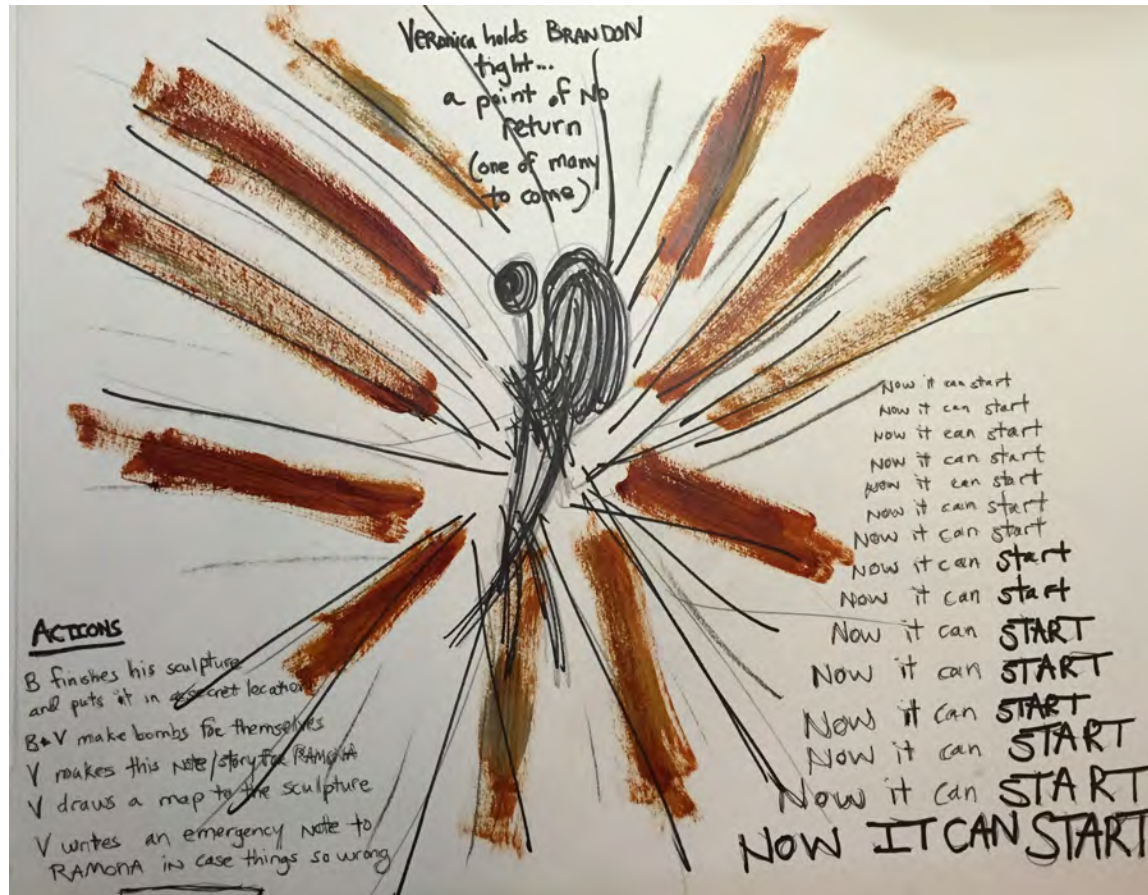 Veronica holds BRANDON
tight...
a point of No
return
(one of many
to come)
Now it can start
Now it can start
Now it can start
Now it can start
Now it can start
Now it can start
Now it can start
Now it can start
Now it can start
Now it can START
Now it can START
Now it can START
Now it can START
Now it can START
NOW IT CAN START
ACTIONS
B finishes his sculpture
and puts it in secret location
B+V make bombs for themselves
V makes this note/story for RAMONA
V draws a map to the sculpture
V writes an emergency note to
RAMONA in case things so wrong